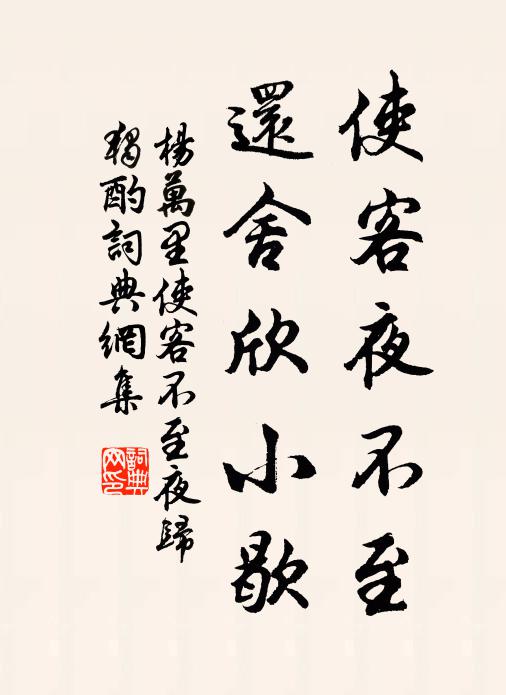 使客夜不至
還舍欣小歇
楊萬里使客不至夜歸
獨酌詞典網集
詞典
网印